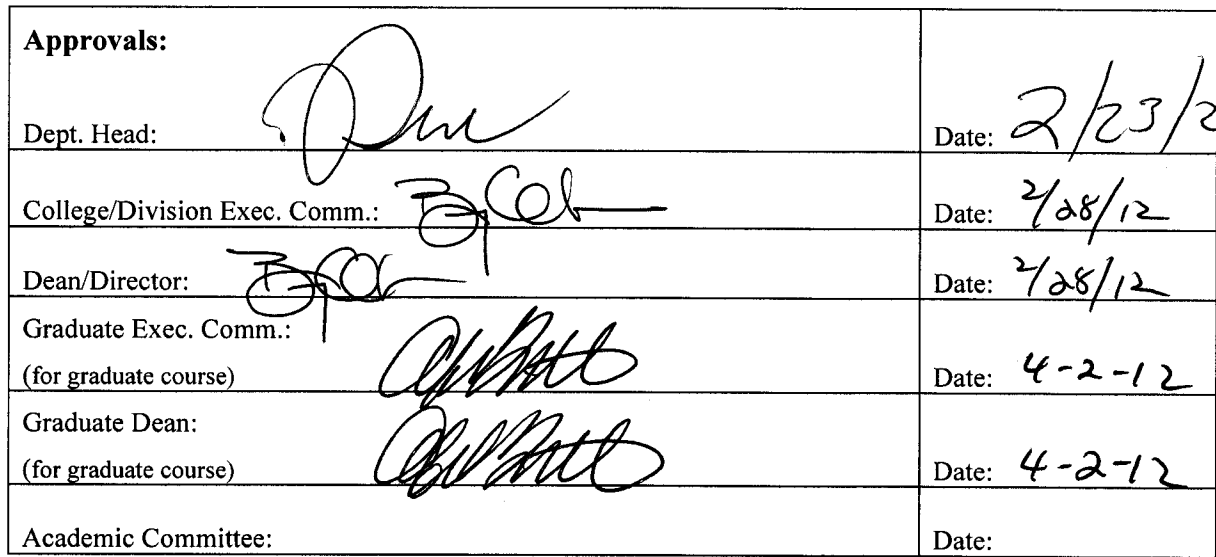 Approvals:
Dept. Head: Date: 2/23/2
College/Division Exec. Comm.: Date: 2/28/12
Dean/Director: Date: 2/28/12
Graduate Exec. Comm.:
(for graduate course) Date: 4-2-12
Graduate Dean:
(for graduate course) Date: 4-2-12
Academic Committee: Date: